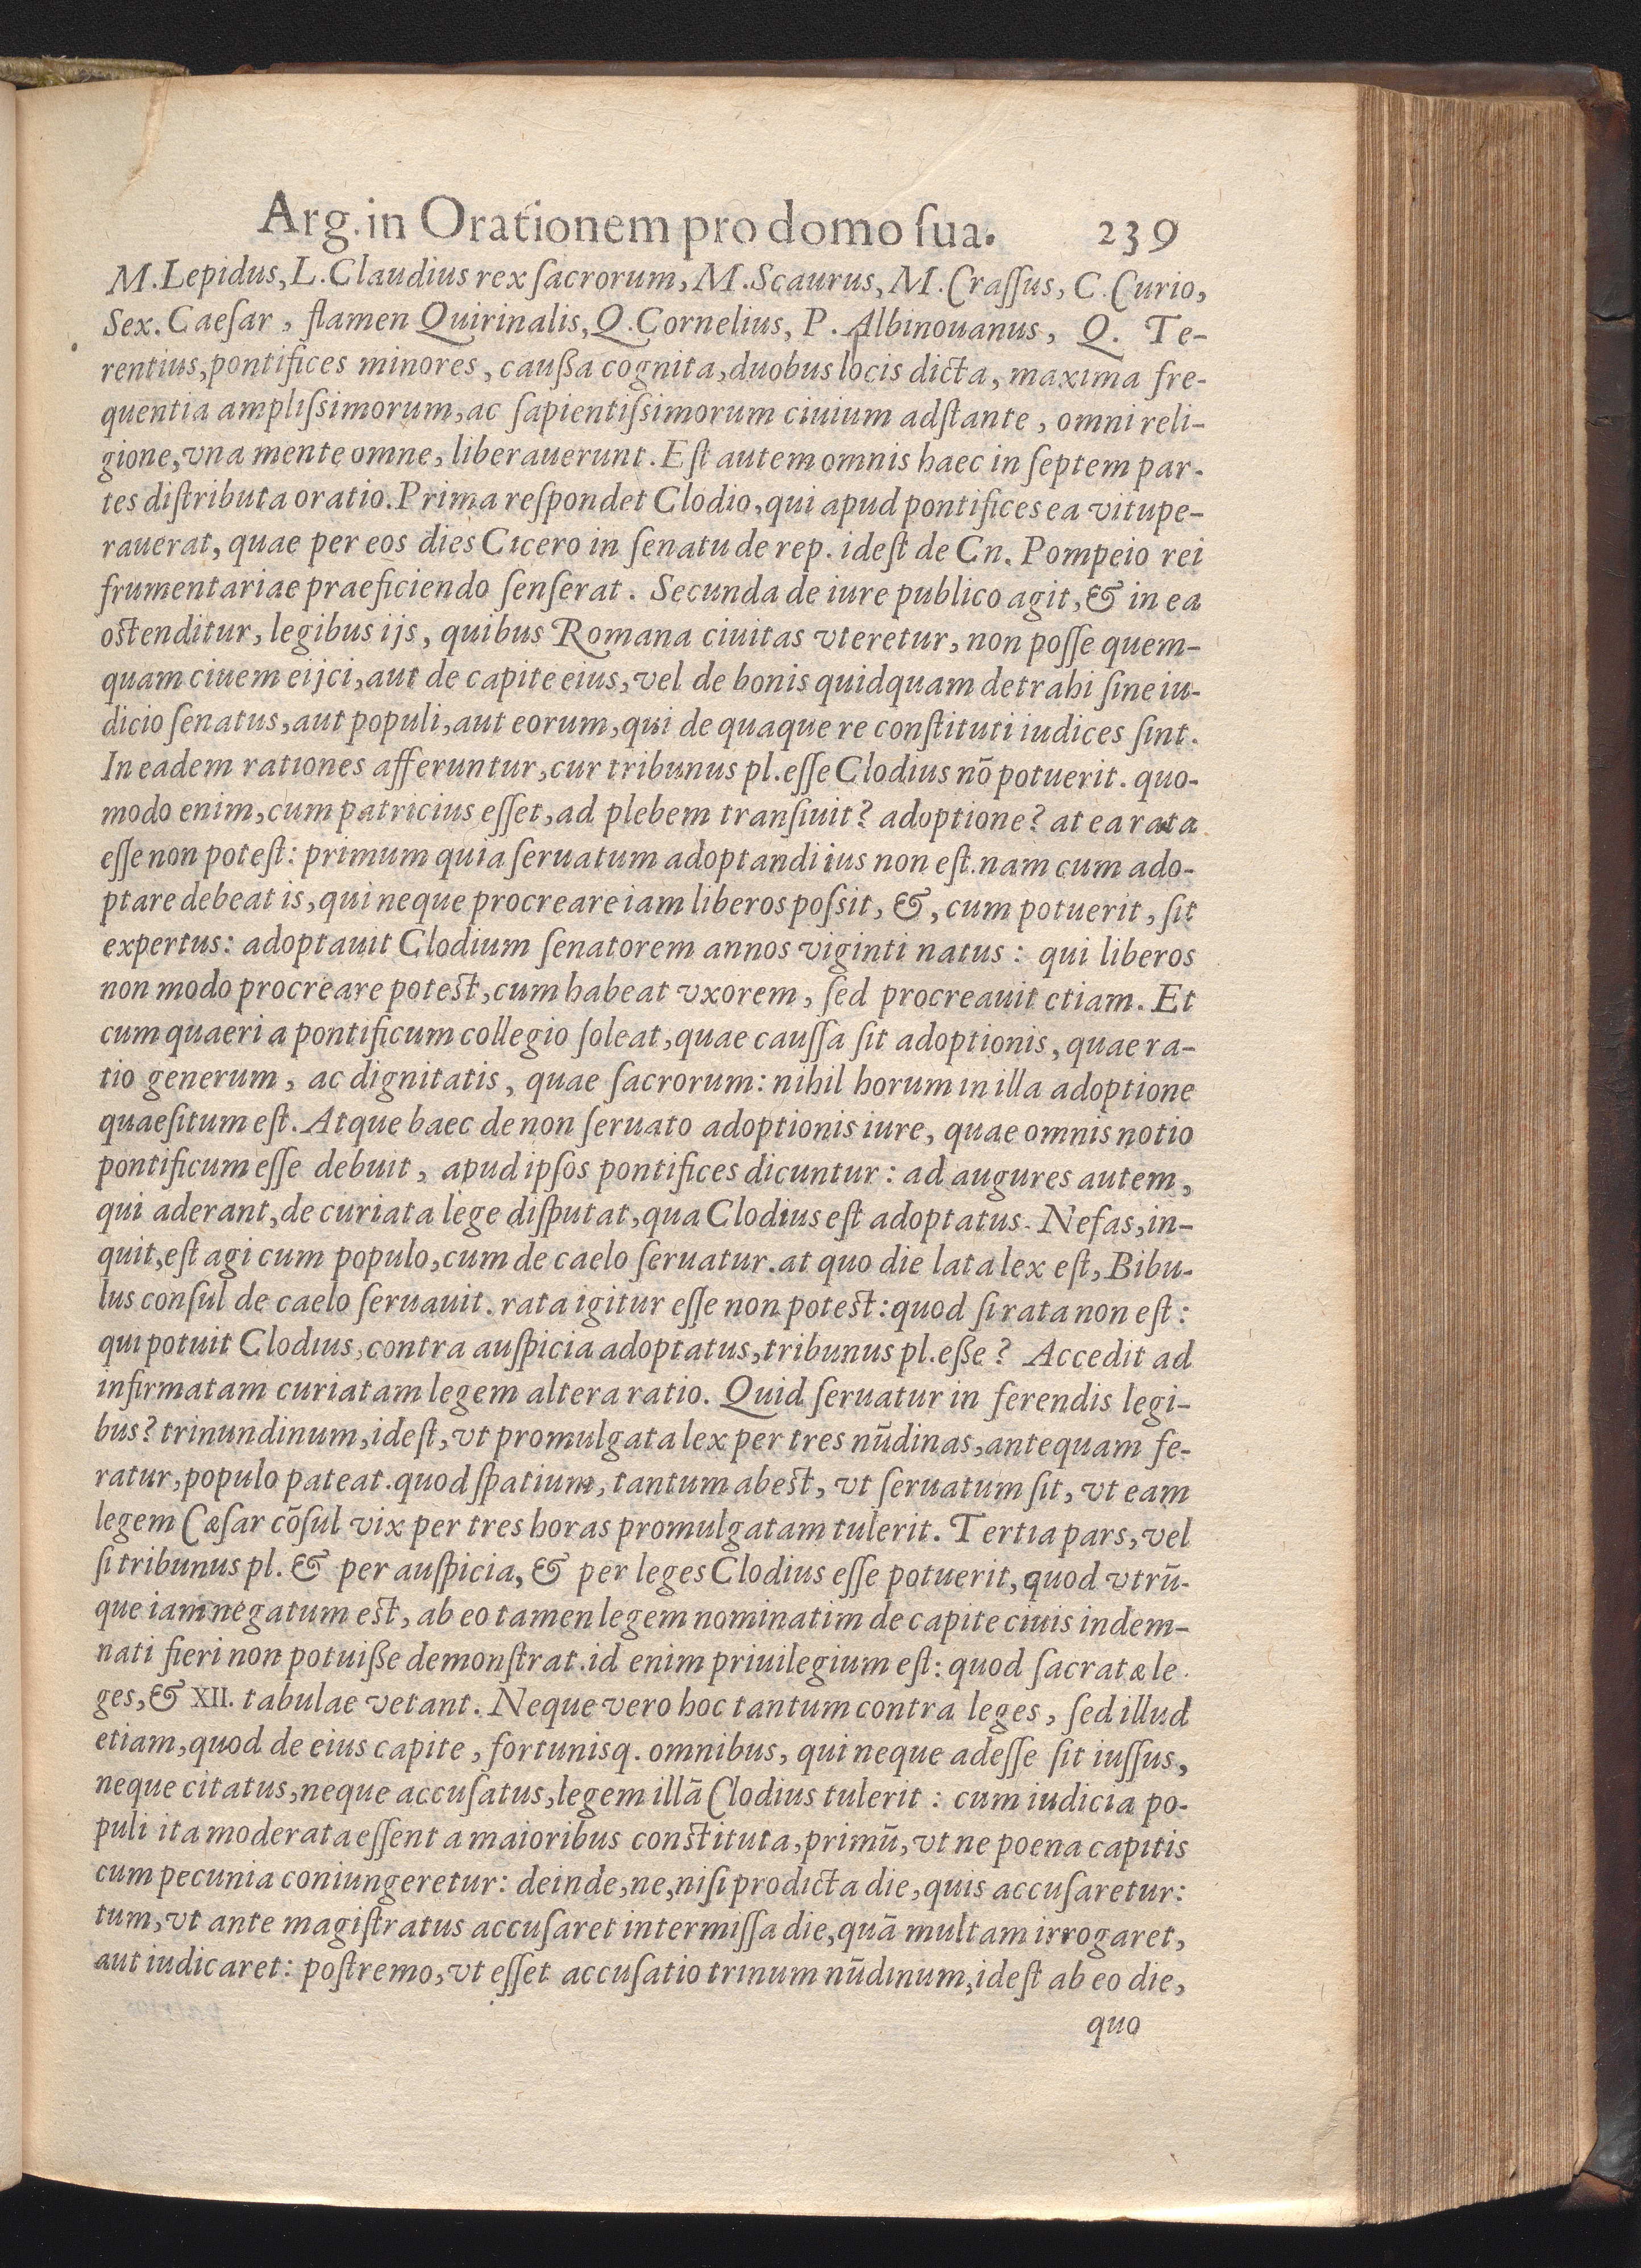 Arg. in Orationem pro domo ſua. 239
M. Lepidus, L. Claudius rex ſacrorum, M. Scaurus, M. Craſſus, C. Curio,
Sex. Caeſar, flamen Quirinalis, Q. Cornelius, P. Albinouanus, Q. Te-
rentius, pontifices minores, cauſſa cognita, duobus locis dicta, maxima fre-
quentia ampliſsimorum, ac ſapientiſsimorum ciuium adſtante, omni reli-
gione, vna mente omne, liberauerunt. Eſt autem omnis haec in ſeptem par-
tes diſtributa oratio. Prima reſpondet Clodio, qui apud pontifices ea vitupe-
rauerat, quae per eos dies Cicero in ſenatu de rep. ideſt de Cn. Pompeio rei
frumentariae praeficiendo ſenſerat. Secunda de iure publico agit, & in ea
oſtenditur, legibus ijs, quibus Romana ciuitas vteretur, non poſſe quem-
quam ciuem eijci, aut de capite eius, vel de bonis quidquam detrahi ſine iu-
dicio ſenatus, aut populi, aut eorum, qui de quaque re conſtituti iudices ſint.
In eadem rationes afferuntur, cur tribunus pl. eſſe Clodius nō potuerit. quo-
modo enim, cum patricius eſſet, ad plebem tranſiuit? adoptione? at ea rata
eſſe non poteſt: primum quia ſeruatum adoptandi ius non eſt. nam cum ado-
ptare debeat is, qui neque procreare iam liberos poſsit, &, cum potuerit, ſit
expertus: adoptauit Clodium ſenatorem annos viginti natus: qui liberos
non modo procreare poteſt, cum habeat vxorem, ſed procreauit etiam. Et
cum quaeri a pontificum collegio ſoleat, quae cauſſa ſit adoptionis, quae ra-
tio generum, ac dignitatis, quae ſacrorum: nihil horum in illa adoptione
quaeſitum eſt. Atque haec de non ſeruato adoptionis iure, quae omnis notio
pontificum eſſe debuit, apud ipſos pontifices dicuntur: ad augures autem,
qui aderant, de curiata lege diſputat, qua Clodius eſt adoptatus. Nefas, in-
quit, eſt agi cum populo, cum de caelo ſeruatur. at quo die lata lex eſt, Bibu-
lus conſul de caelo ſeruauit. rata igitur eſſe non poteſt: quod ſi rata non eſt:
qui potuit Clodius, contra auſpicia adoptatus, tribunus pl. eſſe? Accedit ad
infirmatam curiatam legem altera ratio. Quid ſeruatur in ferendis legi-
bus? trinundinum, ideſt, vt promulgata lex per tres nūdinas, antequam fe-
ratur, populo pateat. quod ſpatium, tantum abeſt, vt ſeruatum ſit, vt eam
legem Cæſar cōſul vix per tres horas promulgatam tulerit. Tertia pars, vel
ſi tribunus pl. & per auſpicia, & per leges Clodius eſſe potuerit, quod vtrū-
que iam negatum eſt, ab eo tamen legem nominatim de capite ciuis indem-
nati fieri non potuiſſe demonſtrat. id enim priuilegium eſt: quod ſacratæ le-
ges, & XII. tabulae vetant. Neque vero hoc tantum contra leges, ſed illud
etiam, quod de eius capite, fortunisq. omnibus, qui neque adeſſe ſit iuſſus,
neque citatus, neque accuſatus, legem illā Clodius tulerit: cum iudicia po-
puli ita moderata eſſent a maioribus conſtituta, primū, vt ne poena capitis
cum pecunia coniungeretur: deinde, ne, niſi prodicta die, quis accuſaretur:
tum, vt ante magiſtratus accuſaret intermiſſa die, quā multam irrogaret,
aut iudicaret: poſtremo, vt eſſet accuſatio trinum nūdinum, ideſt ab eo die,
quo